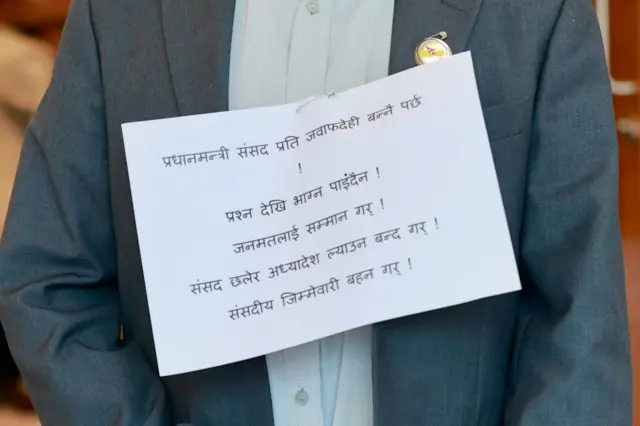 प्रधानमन्त्री संसद प्रति जवाफदेही बन्नै पर्छ
!
प्रश्न देखि भाग्न पाइंदैन !
जनमतलाई सम्मान गर् !
संसद छलेर अध्यादेश ल्याउन बन्द गर् !
संसदीय जिम्मेवारी बहन गर् !